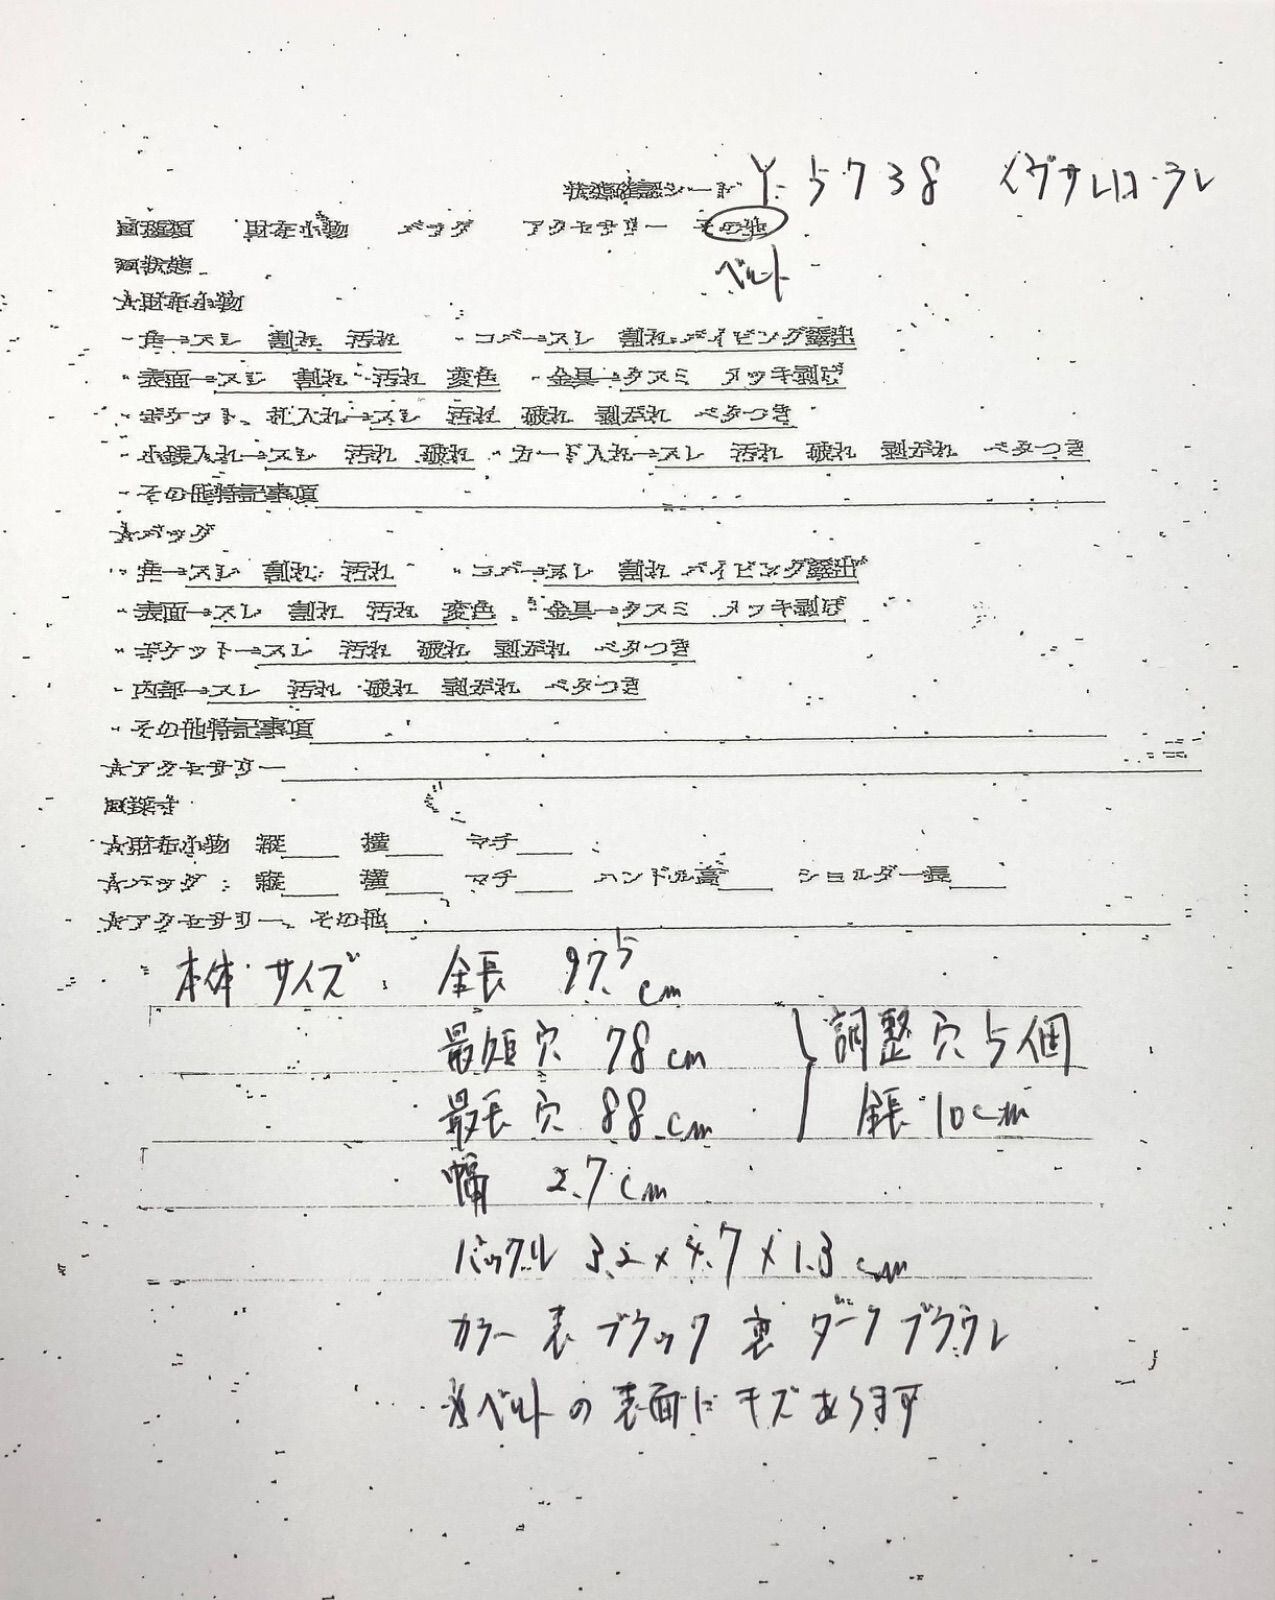 状態確認シート Y-5738 イヴサンローラン
□種類 財布小物 バッグ アクセサリー その他
ベルト
□状態
☆財布小物
・角→スレ 割れ 汚れ ・コバ→スレ 割れ パイピング露出
・表面→スレ 割れ 汚れ 変色 ・金具→クスミ メッキ剥げ
・ポケット、札入れ→スレ 汚れ 破れ 剥がれ ベタつき
・小銭入れ→スレ 汚れ 破れ ・カード入れ→スレ 汚れ 破れ 剥がれ ベタつき
・その他特記事項
☆バッグ
・角→スレ 割れ 汚れ ・コバ→スレ 割れ パイピング露出
・表面→スレ 割れ 汚れ 変色 ・金具→クスミ メッキ剥げ
・ポケット→スレ 汚れ 破れ 剥がれ ベタつき
・内部→スレ 汚れ 破れ 剥がれ ベタつき
・その他特記事項
☆アクセサリー
□採寸
☆財布小物 縦 横 マチ
☆バッグ 縦 横 マチ ハンドル高 ショルダー長
☆アクセサリー、その他
本体サイズ 全長 97.5cm
最短穴 78cm
最長穴 88cm
調整穴5個
全長10cm
幅 2.7cm
バックル 3.2×4.7×1.3cm
カラー 表 ブラック 裏 ダークブラウン
※ベルトの表面にキズあります